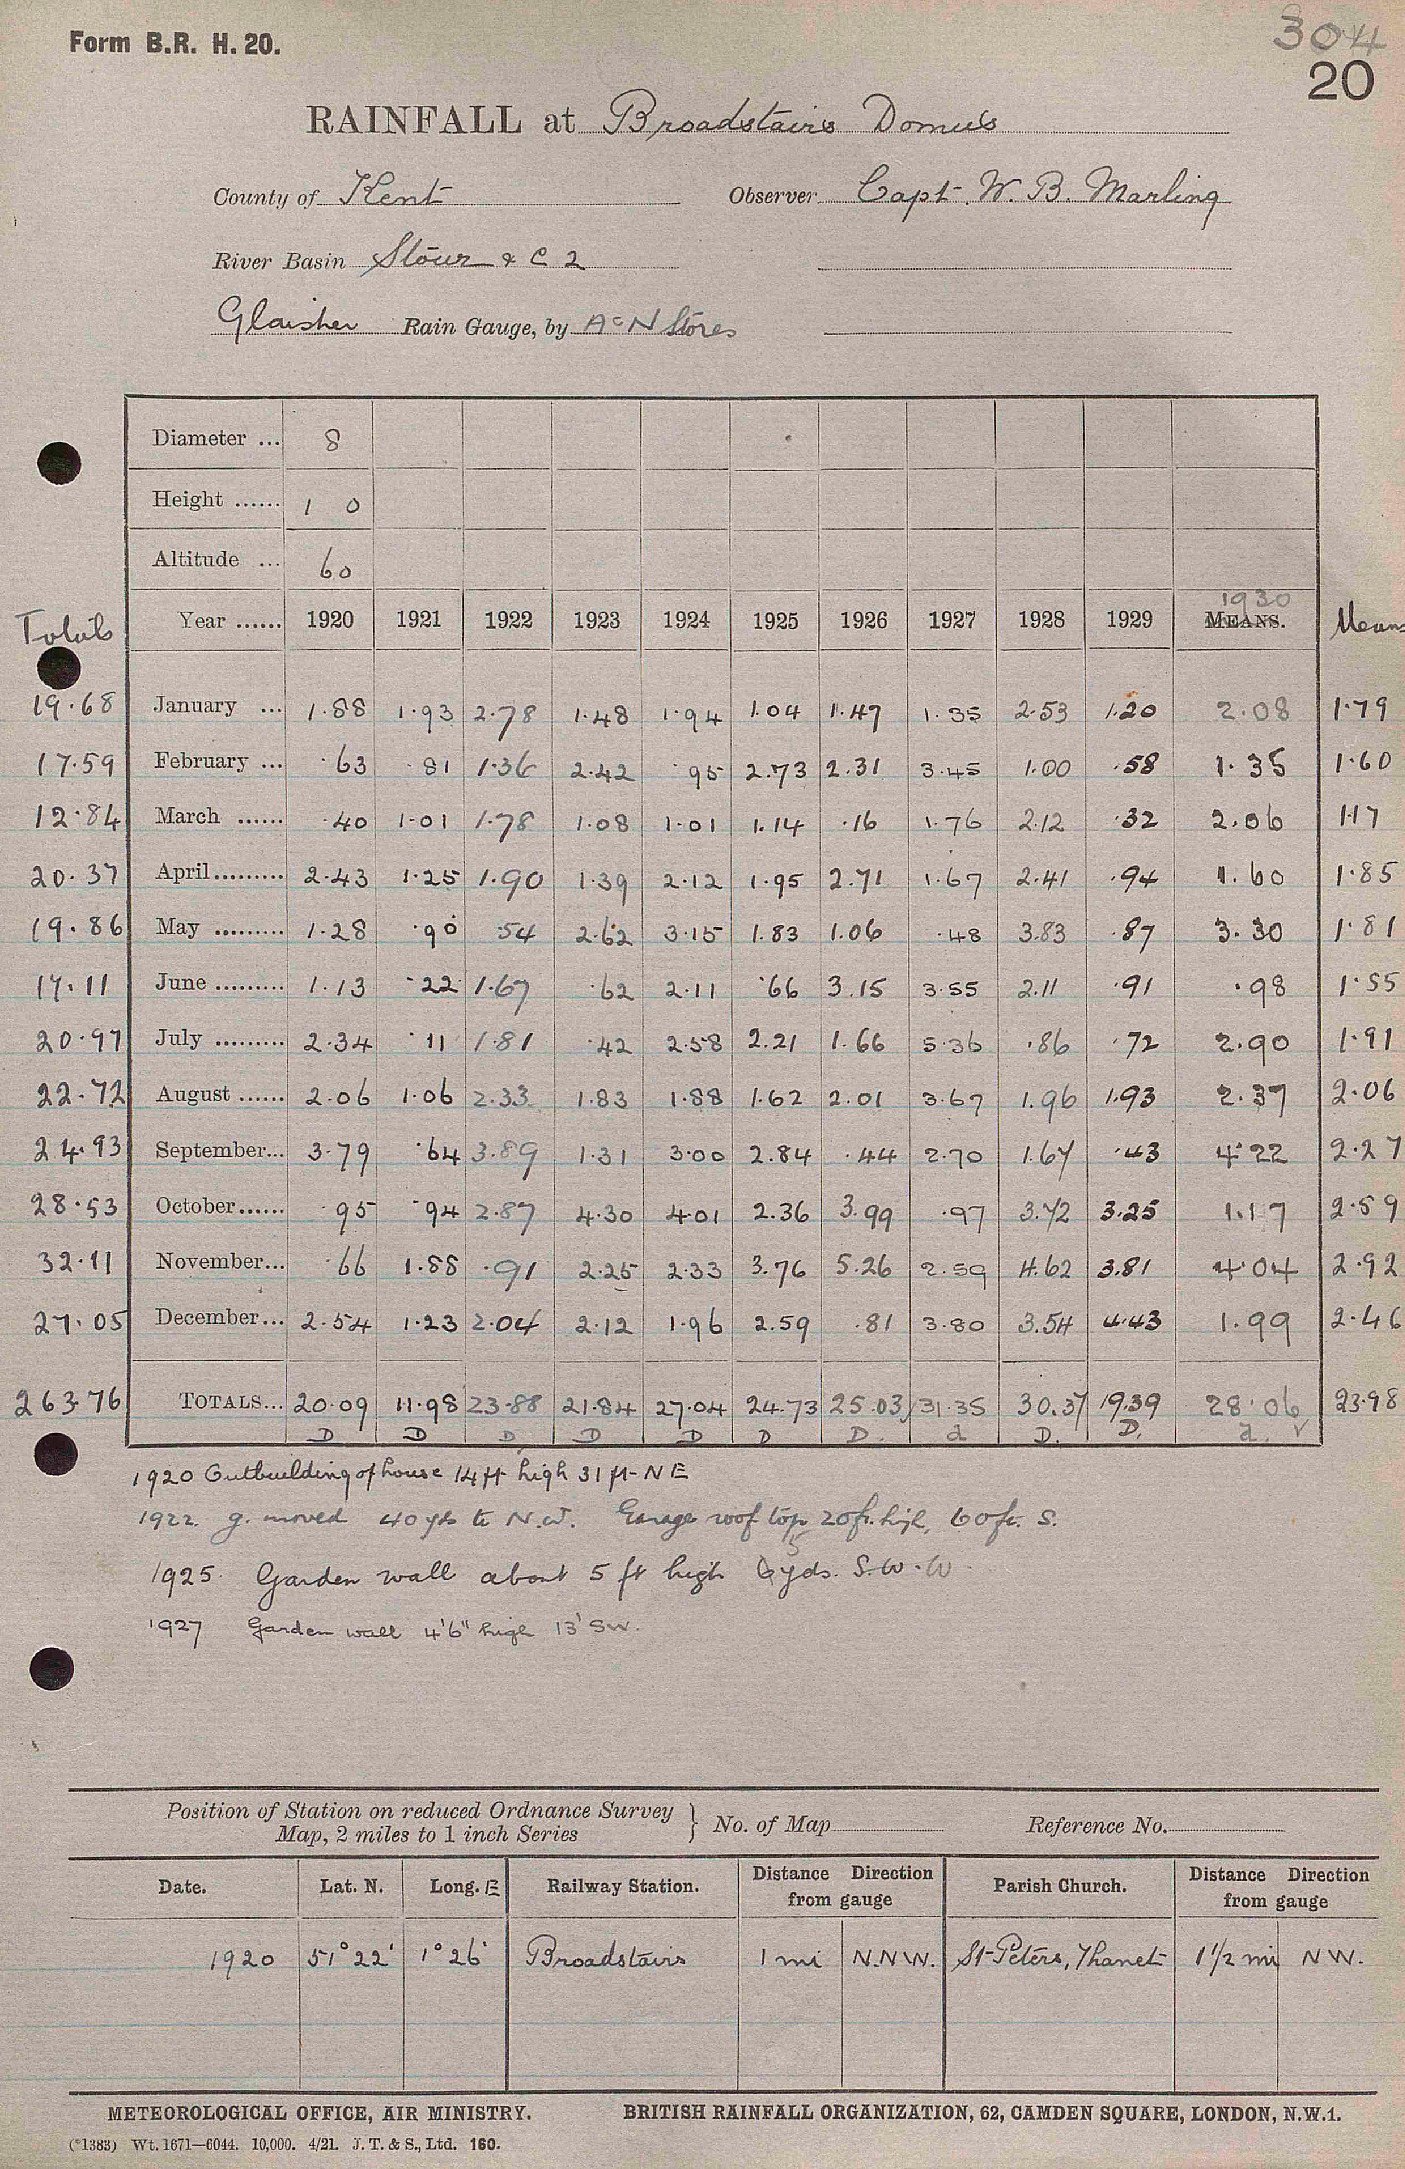 Form B.R. H. 20.
304
20
RAINFALL at Broadstairs Domus
County of Kent Observer Capt. W. B. Marling
River Basin Stour & C 2
Glaisher Rain Gauge, by A & N Stores
Diameter ... 8
Height ...... 1 0
Altitude ... 60
Totals Year ...... 1920 1921 1922 1923 1924 1925 1926 1927 1928 1929 1930 MEANS. Means
19.68 January ... 1.88 1.93 2.78 1.48 1.94 1.04 1.47 1.35 2.53 1.20 2.08 1.79
17.59 February ... .63 .81 1.36 2.42 .95 2.73 2.31 3.45 1.00 .58 1.35 1.60
12.84 March ...... .40 1.01 1.78 1.08 1.01 1.14 .16 1.76 2.12 .32 2.06 1.17
20.37 April ......... 2.43 1.25 1.90 1.39 2.12 1.95 2.71 1.67 2.41 .94 1.60 1.85
19.86 May ......... 1.28 .90 .54 2.62 3.15 1.83 1.06 .48 3.83 .87 3.30 1.81
17.11 June ......... 1.13 .22 1.67 .62 2.11 .66 3.15 3.55 2.11 .91 .98 1.55
20.97 July ......... 2.34 .11 1.81 .42 2.58 2.21 1.66 5.36 .86 .72 2.90 1.91
22.72 August ...... 2.06 1.06 2.33 1.83 1.88 1.62 2.01 3.67 1.96 1.93 2.37 2.06
24.93 September... 3.79 .64 3.89 1.31 3.00 2.84 .44 2.70 1.67 .43 4.22 2.27
28.53 October...... .95 .94 2.87 4.30 4.01 2.36 3.99 .97 3.72 3.25 1.17 2.59
32.11 November... .66 1.88 .91 2.25 2.33 3.76 5.26 2.59 4.62 3.81 4.04 2.92
27.05 December... 2.54 1.23 2.04 2.12 1.96 2.59 .81 3.80 3.54 4.43 1.99 2.46
263.76 TOTALS... 20.09 11.98 23.88 21.84 27.04 24.73 25.03 31.35 30.37 19.39 28.06 23.98
D D D D D D D. d D. D. d.
1920 Outbuilding of house 14 ft high 31 ft NE
1922 g. moved 40 yds to N.W. Garage roof top 20 ft. high, 60 ft. S.
1925 Garden wall about 5 ft high yds. S.W.W
1927 Garden wall 4'6" high 13' SW.
Position of Station on reduced Ordnance Survey
Map, 2 miles to 1 inch Series } No. of Map Reference No.
Date. Lat. N. Long. E Railway Station. Distance Direction from gauge Parish Church. Distance Direction from gauge
1920 51° 22' 1° 26' Broadstairs 1 mi N.N.W. St Peters, Thanet 1 1/2 mi NW.
METEOROLOGICAL OFFICE, AIR MINISTRY. BRITISH RAINFALL ORGANIZATION, 62, CAMDEN SQUARE, LONDON, N.W.1.
(*1383) Wt. 1671—6044. 10,000. 4/21. J. T. & S., Ltd. 160.